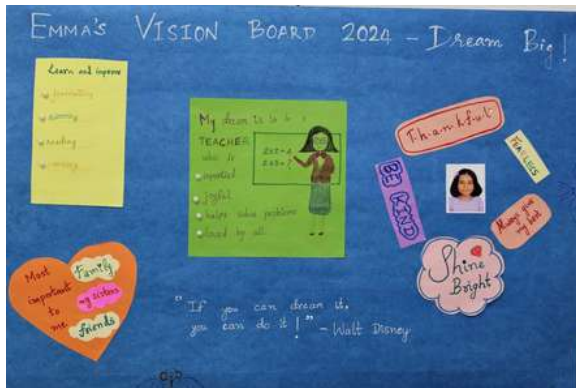 EMMA'S VISION BOARD 2024 – Dream Big!
Learn and improve
reading
My dream is to be a
TEACHER
who is
respected
joyful
helps solve problems
loved by all
2x2=4
Thankful
FEARLESS
BE KIND
Always give
my best
Shine
Bright
Most
important
to
me.
Family
my sisters
friends
"If you can dream it,
you can do it!" – Walt Disney